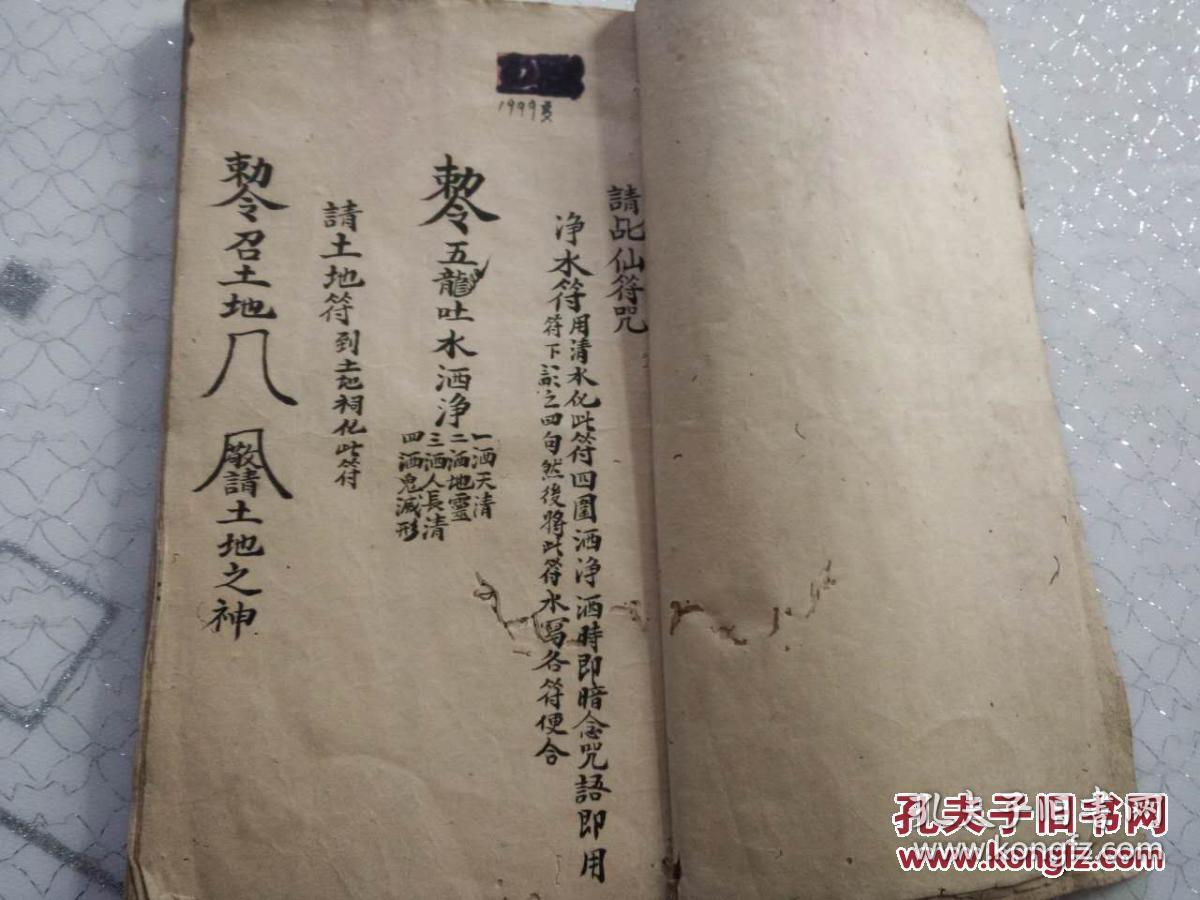 請乩仙符咒
淨水符用清水化此符四圍洒淨洒時即暗念咒語即用
符下之四句然後將此符水寫各符便合
勅令五龍吐水洒淨
一洒天清
二洒地靈
三洒人長清
四洒鬼滅形
請土地符到土地祠化此符
勅令召土地
敬請土地之神
1999
孔夫子旧书网
www.kongfz.com